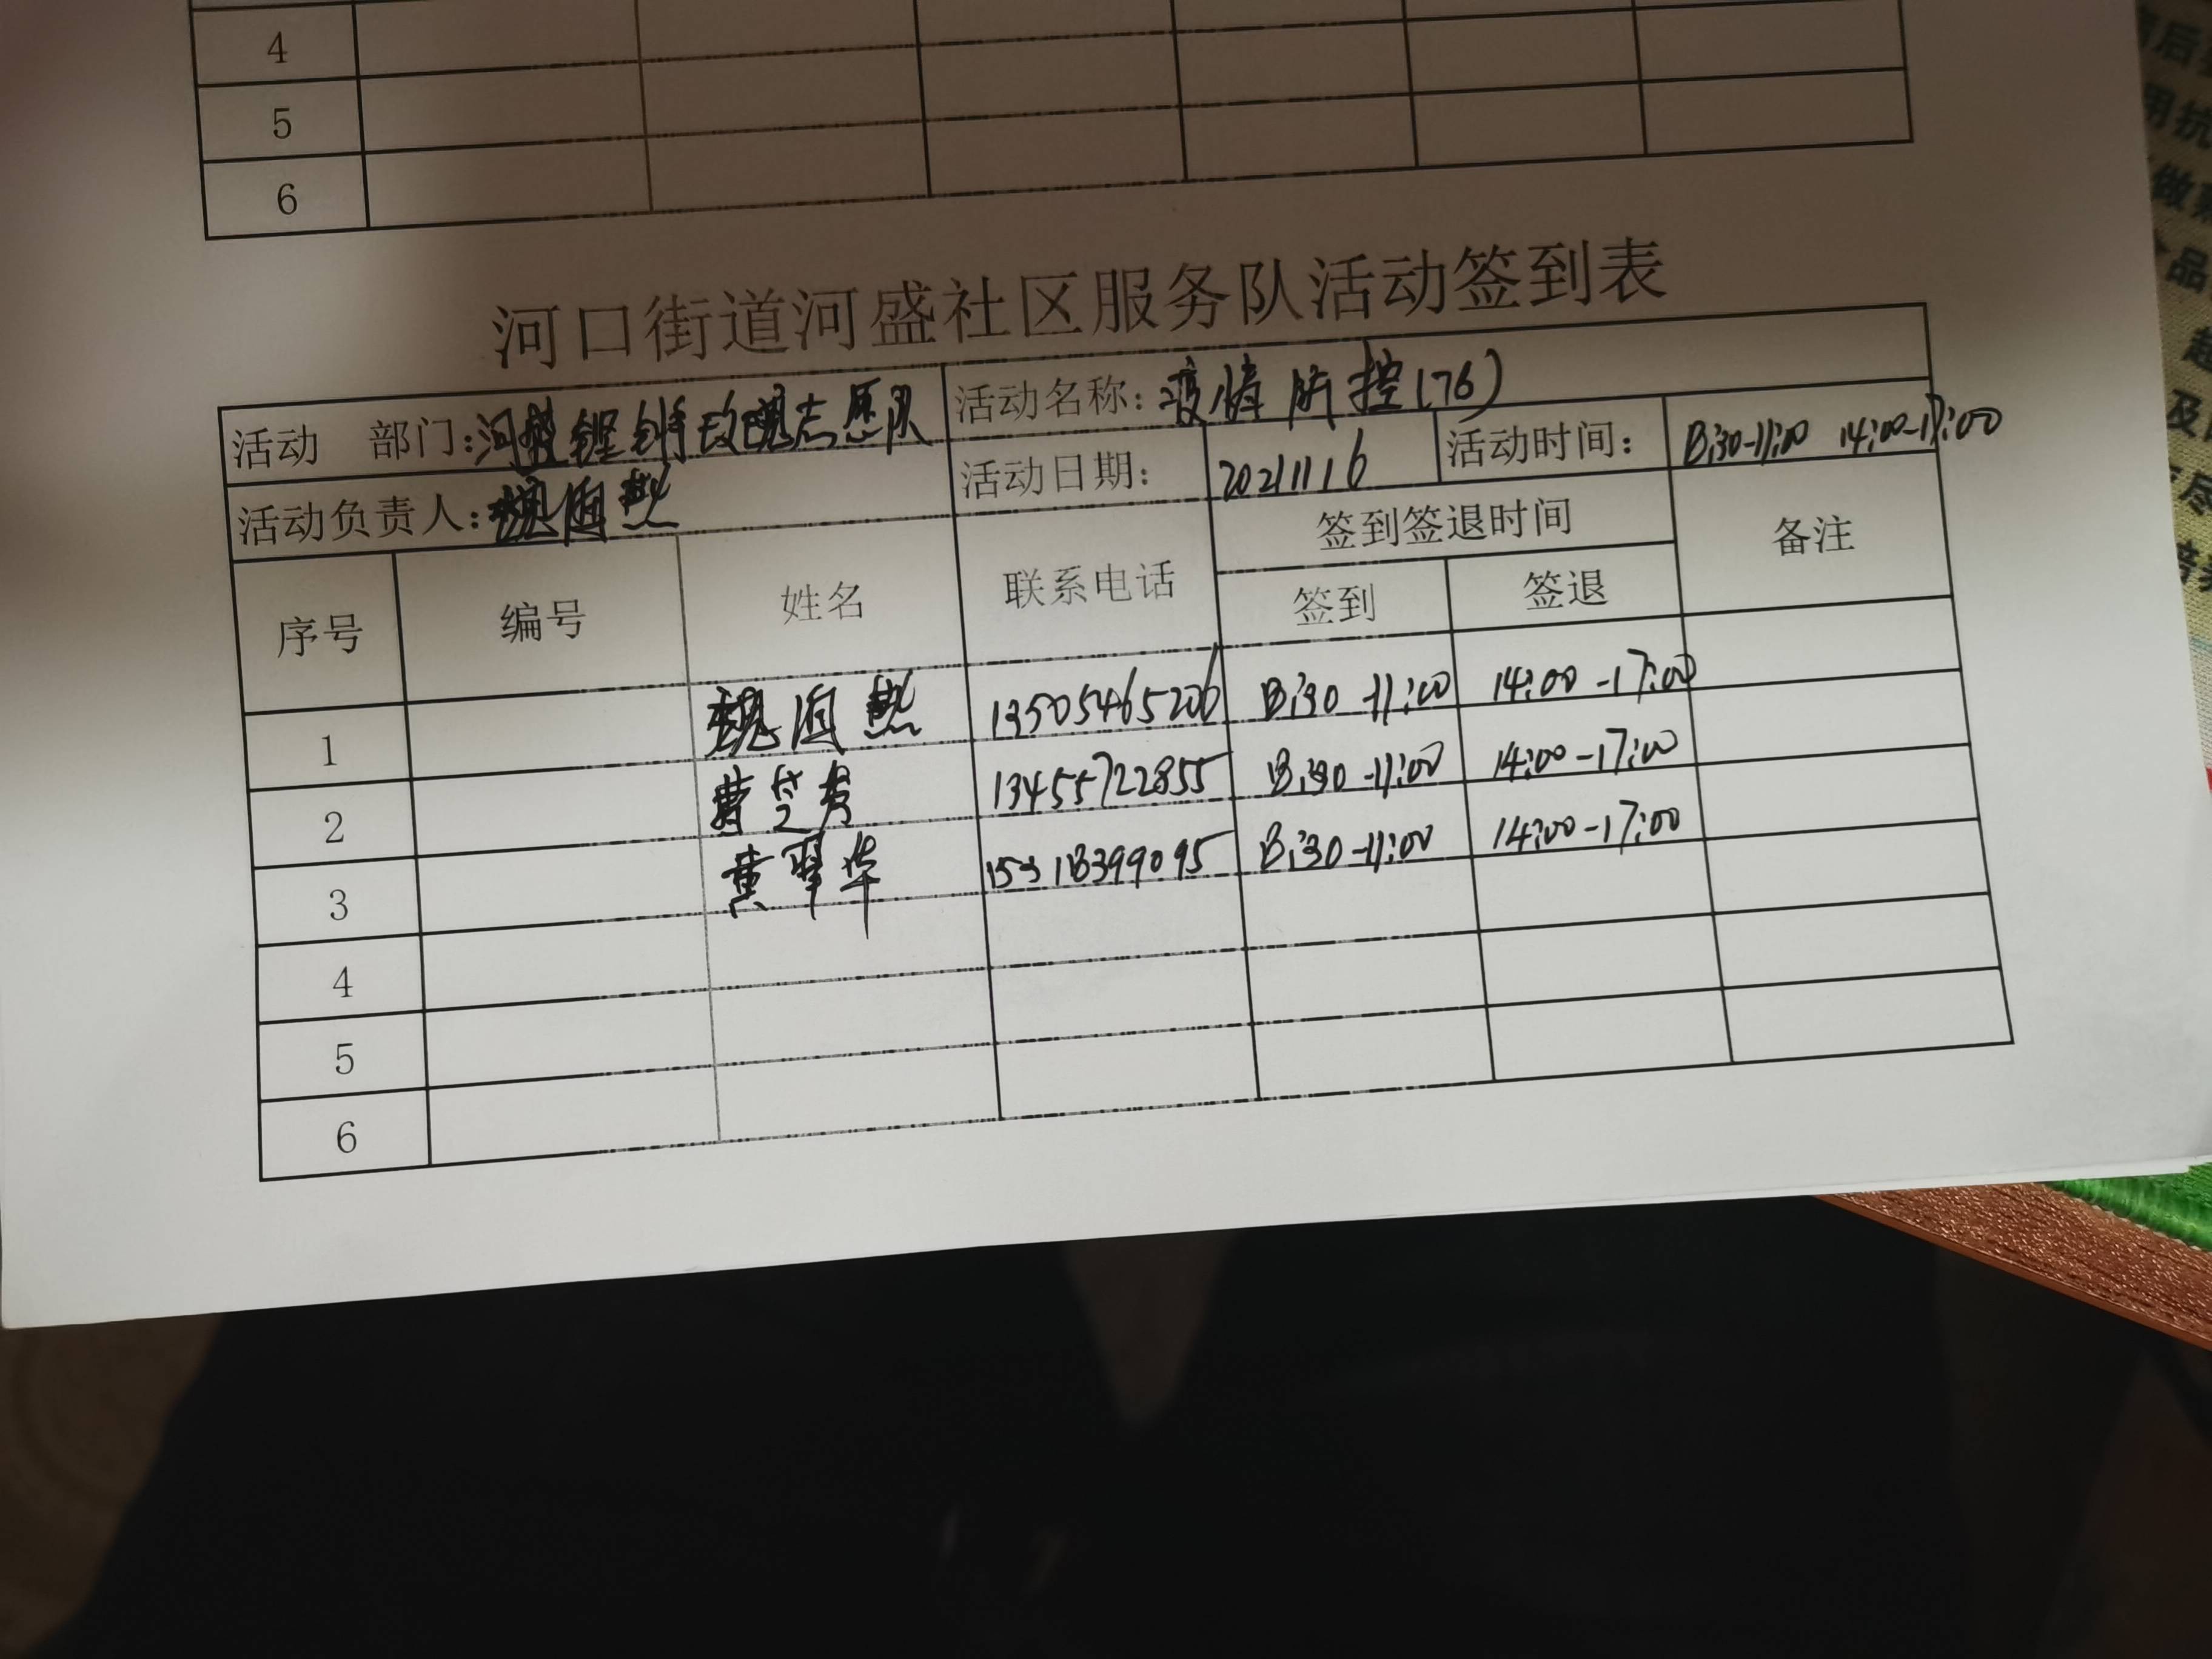 4
5
6
河口街道河盛社区服务队活动签到表
活动 部门: 志愿队 活动名称: 疫情防控(76)
活动负责人: 活动日期: 20211116 活动时间: 8:30-11:00 14:00-17:00
序号 编号 姓名 联系电话 签到签退时间 备注
签到 签退
1 13505465206 8:30-11:00 14:00-17:00
2 13455722855 8:30-11:00 14:00-17:00
3 黄翠华 15318399095 8:30-11:00 14:00-17:00
4
5
6